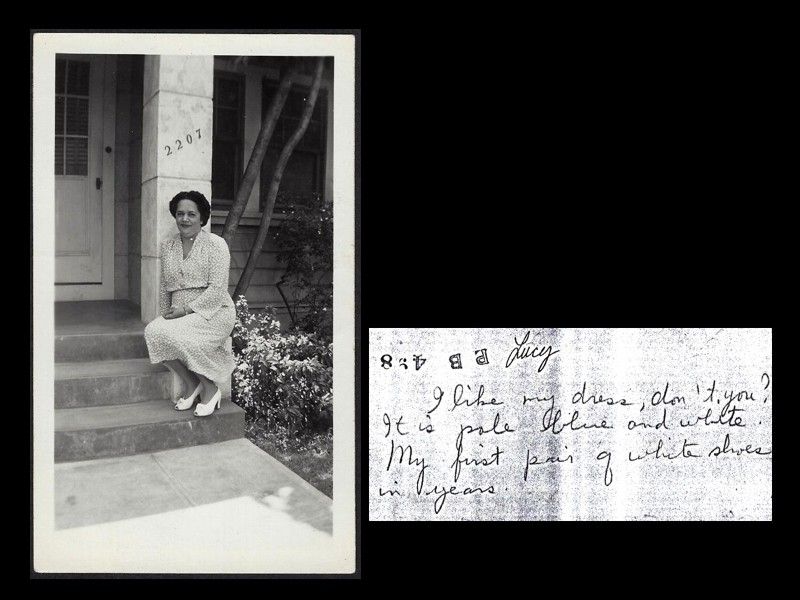 2207
Lucy
I like my dress, don't you?
It is pale blue and white.
My first pair of white shoes
in years.